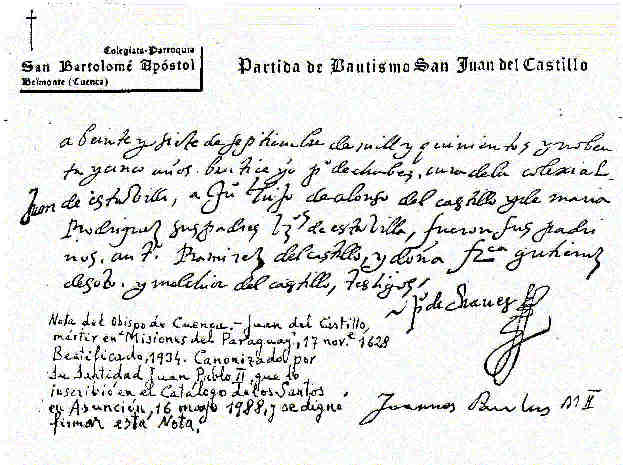 Colegiata-Parroquia
San Bartolomé Apóstol
Belmonte (Cuenca)
Partida de Bautismo San Juan del Castillo
a beinte y siete de septiembre de mill y quinientos y noben
ta y cinco años. bautice yo pº de chabez, cura de la colexial
Juan de esta billa, a Juº hijo de alonso del castillo y de maria
Rodriguez sus padres vzºs de esta billa, fueron sus padri
nos. antº. Ramirez del castillo, y doña frca gutierrez
de soto. y melchior del castillo, testigos,
pº de Chaues
Nota del Obispo de Cuenca.- Juan del Castillo,
mártir en "Misiones del Paraguay", 17 nov.e 1628
Beatificado, 1934. Canonizado por
Su Santidad Juan Pablo II, que lo
inscribió en el Catálogo de los Santos
en Asunción, 16 mayo 1988, y se dignó
firmar esta Nota.
Joannes Paulus PP II